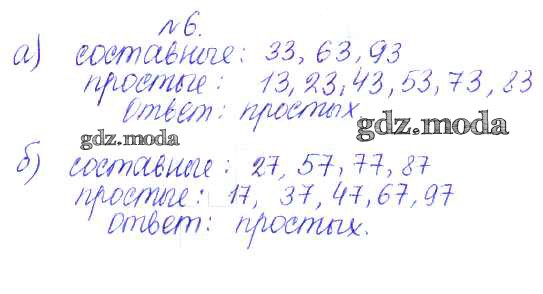 №6.
а) составные: 33, 63, 93
простые: 13, 23, 43, 53, 73, 83
Ответ: простых.
gdz.moda
gdz.moda
б) составные: 27, 57, 77, 87
простые: 17, 37, 47, 67, 97
Ответ: простых.